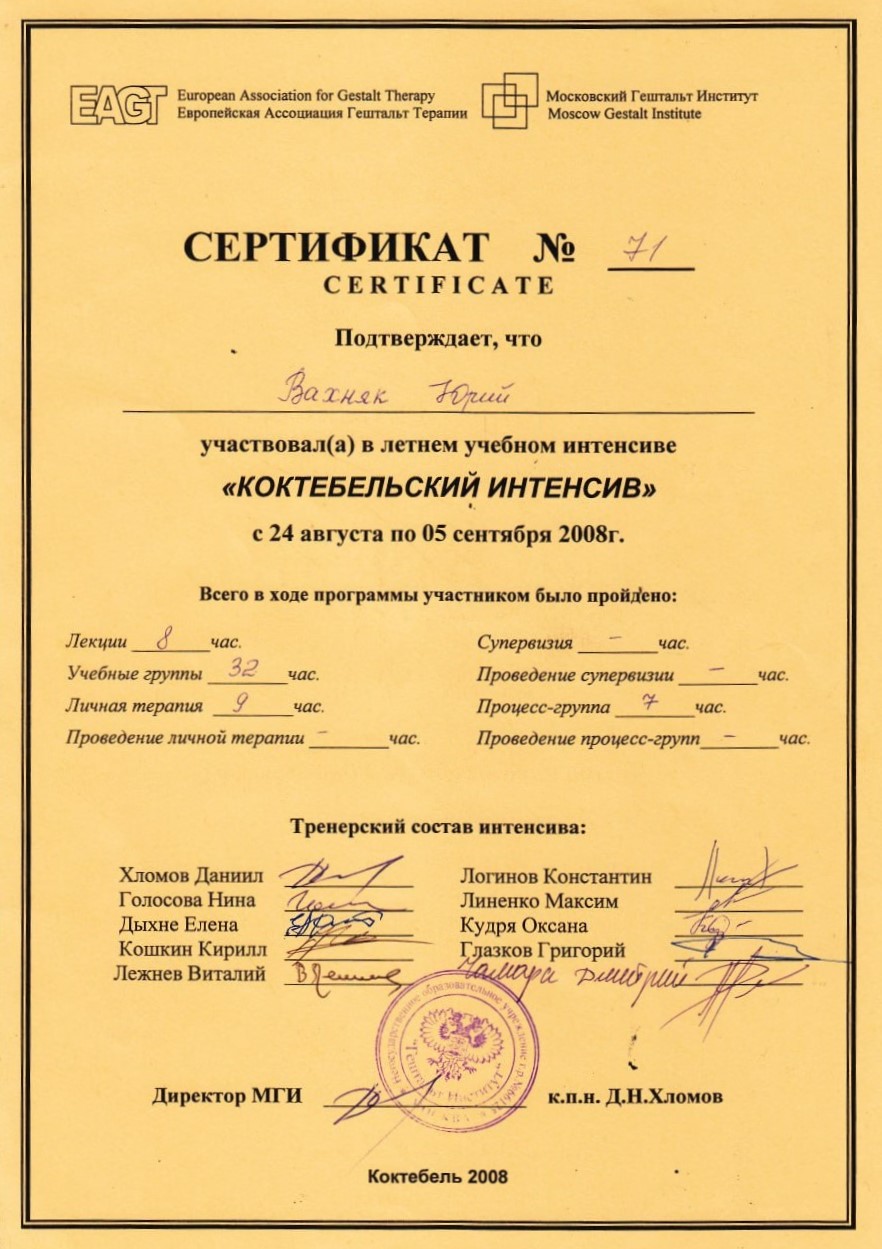 EAGT European Association for Gestalt Therapy
Европейская Ассоциация Гештальт Терапии
Московский Гештальт Институт
Moscow Gestalt Institute
СЕРТИФИКАТ № 71
CERTIFICATE
Подтверждает, что
Вахняк Юрий
участвовал(а) в летнем учебном интенсиве
«КОКТЕБЕЛЬСКИЙ ИНТЕНСИВ»
с 24 августа по 05 сентября 2008г.
Всего в ходе программы участником было пройдено:
Лекции 8 час.
Учебные группы 32 час.
Личная терапия 9 час.
Проведение личной терапии – час.
Супервизия – час.
Проведение супервизии – час.
Процесс-группа 7 час.
Проведение процесс-групп – час.
Тренерский состав интенсива:
Хломов Даниил
Голосова Нина
Дыхне Елена
Кошкин Кирилл
Лежнев Виталий
Логинов Константин
Линенко Максим
Кудря Оксана
Глазков Григорий
Дмитрий
Негосударственное образовательное учреждение
"Гештальт Институт"
МОСКВА
Директор МГИ к.п.н. Д.Н.Хломов
Коктебель 2008